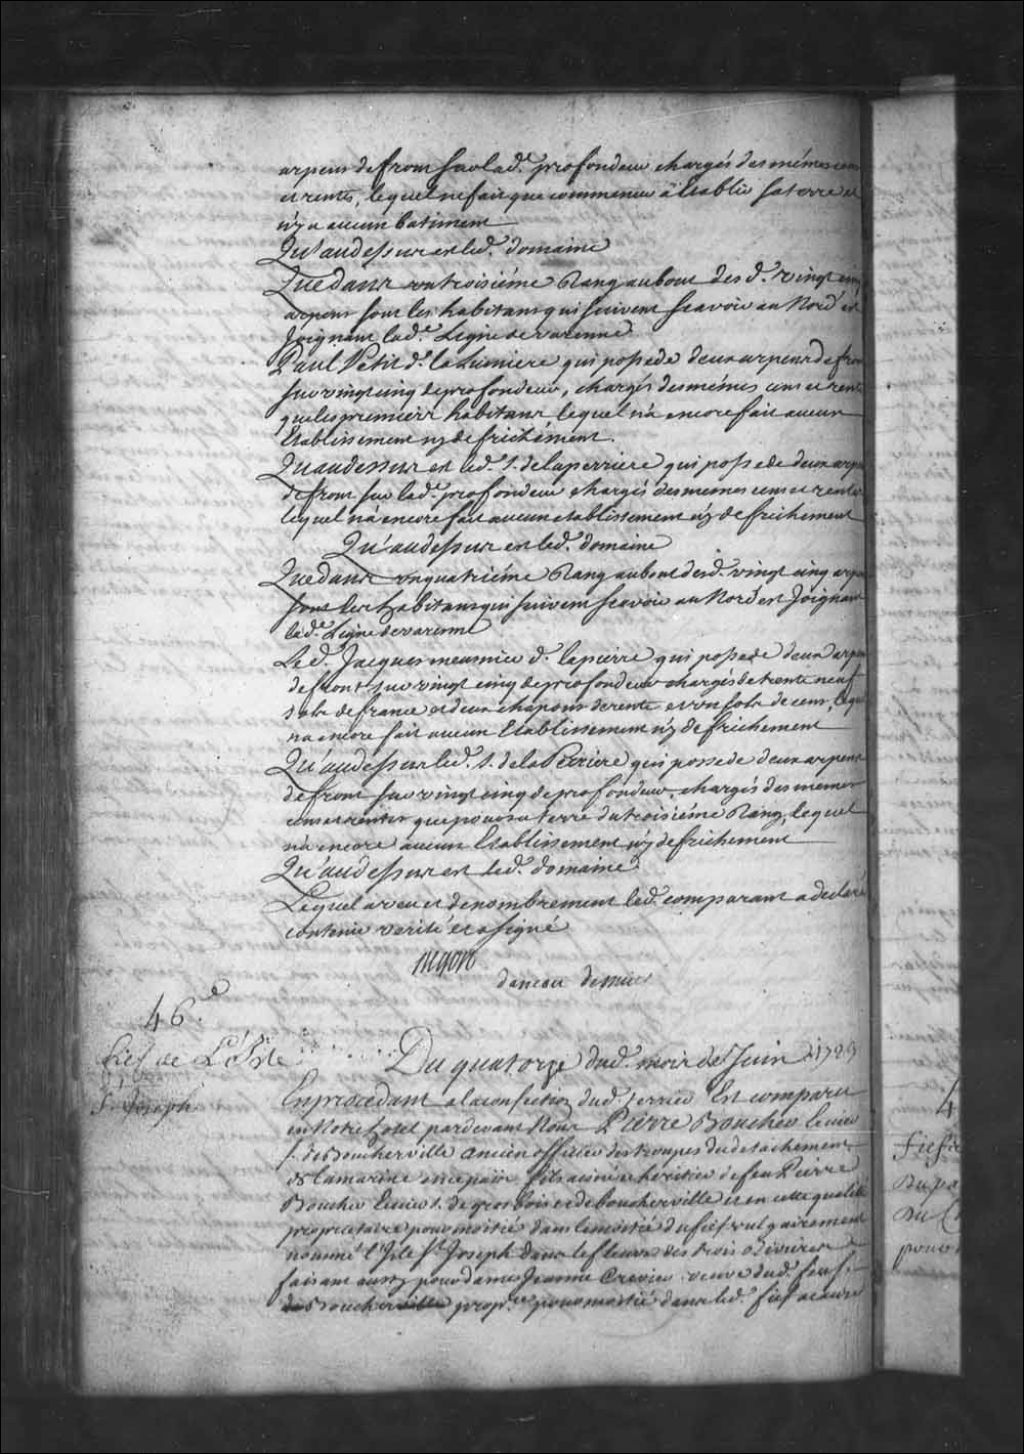 arpens de front sur lad.e profondeur chargés des mémes cens
et rentes, lequel ne fait que commencer à Etablir sa terre et
n'y a aucun batiment
Qu'audessus est led. domaine
Que dans un troisiéme Rang au bout des d. vingt cinq
arpens sont les habitans qui suivent scavoir au Nord est
Joignant lad.e Ligne de varenne
Paul Petit d. la Lumiere qui possede deux arpens de front
sur vingt cinq de profondeur, chargés des mémes cens et rentes
que les premiers habitans lequel n'a encore fait aucun
Etablissement ny defrichément.
Qu'audessus est led. S. de laperriere qui possede deux arpens
de front sur lad.e profondeur chargés des memes cens et rentes
lequel n'a encore fait aucun etablissement n'y defrichement
Qu'audessus est led. domaine
Que dans un quatriéme Rang au bout desd. vingt cinq arpens
sont les habitans qui suivent scavoir au Nord est Joignant
lad.e Ligne de varenne
Led. Jacques meusnier d. lapierre qui possede deux arpens
de front sur vingt cinq de profondeur chargés de trente neuf
sols de france et deux chapons de rente et un sols de cens, lequel
na encore fait aucun Etablissement n'y defrichement
Qu'audessus led. S. de la Perriere qui possede deux arpens
de front sur vingt cinq de profondeur chargés des memes
cens et rentes que pour sa terre du troisiéme Rang, lequel
na encore aucun Etablissement n'y defrichement
Qu'audessus est led. domaine
Lequel aveu et denombrement led. comparant a declaré
contenir verité et a signé
daneau demuy
46.e
fief de L'Isle
S.t Joseph
Du quatorze dud. mois de Juin 1729
En procedant a la confection dud. terrier Est comparu
en Notre hotel pardevant Nous Pierre Boucher Ecuier
S. de Boucherville ancien officier des troupes du detachement
de la marine en ce païs fils ainé et heritier de feu Pierre
Boucher Ecuier S. de grosbois et de boucherville et en cette qualité
proprietaire pour moitié dans la moitié du fief vulgairement
nommé l'Isle S.t Joseph dans le fleuve des trois
faisant aussy pour dame Jeanne Crevier veuve dud. feu S.
de Boucherville prop.re pour moitié dans led. fief
4
Fief
Du
pour